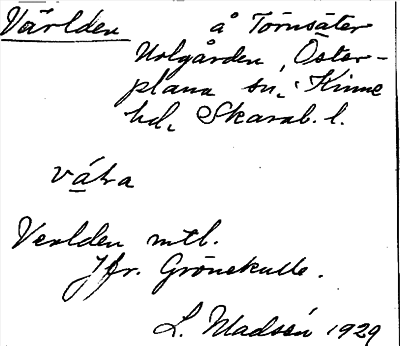 Världen å Törnsäter
Holgården, Öster-
plana sn, Kinne
hd, Skarab. l.
vä̱ḷa
Verlden mtl.
Jfr. Grönekulle.
L. Madsén 1929